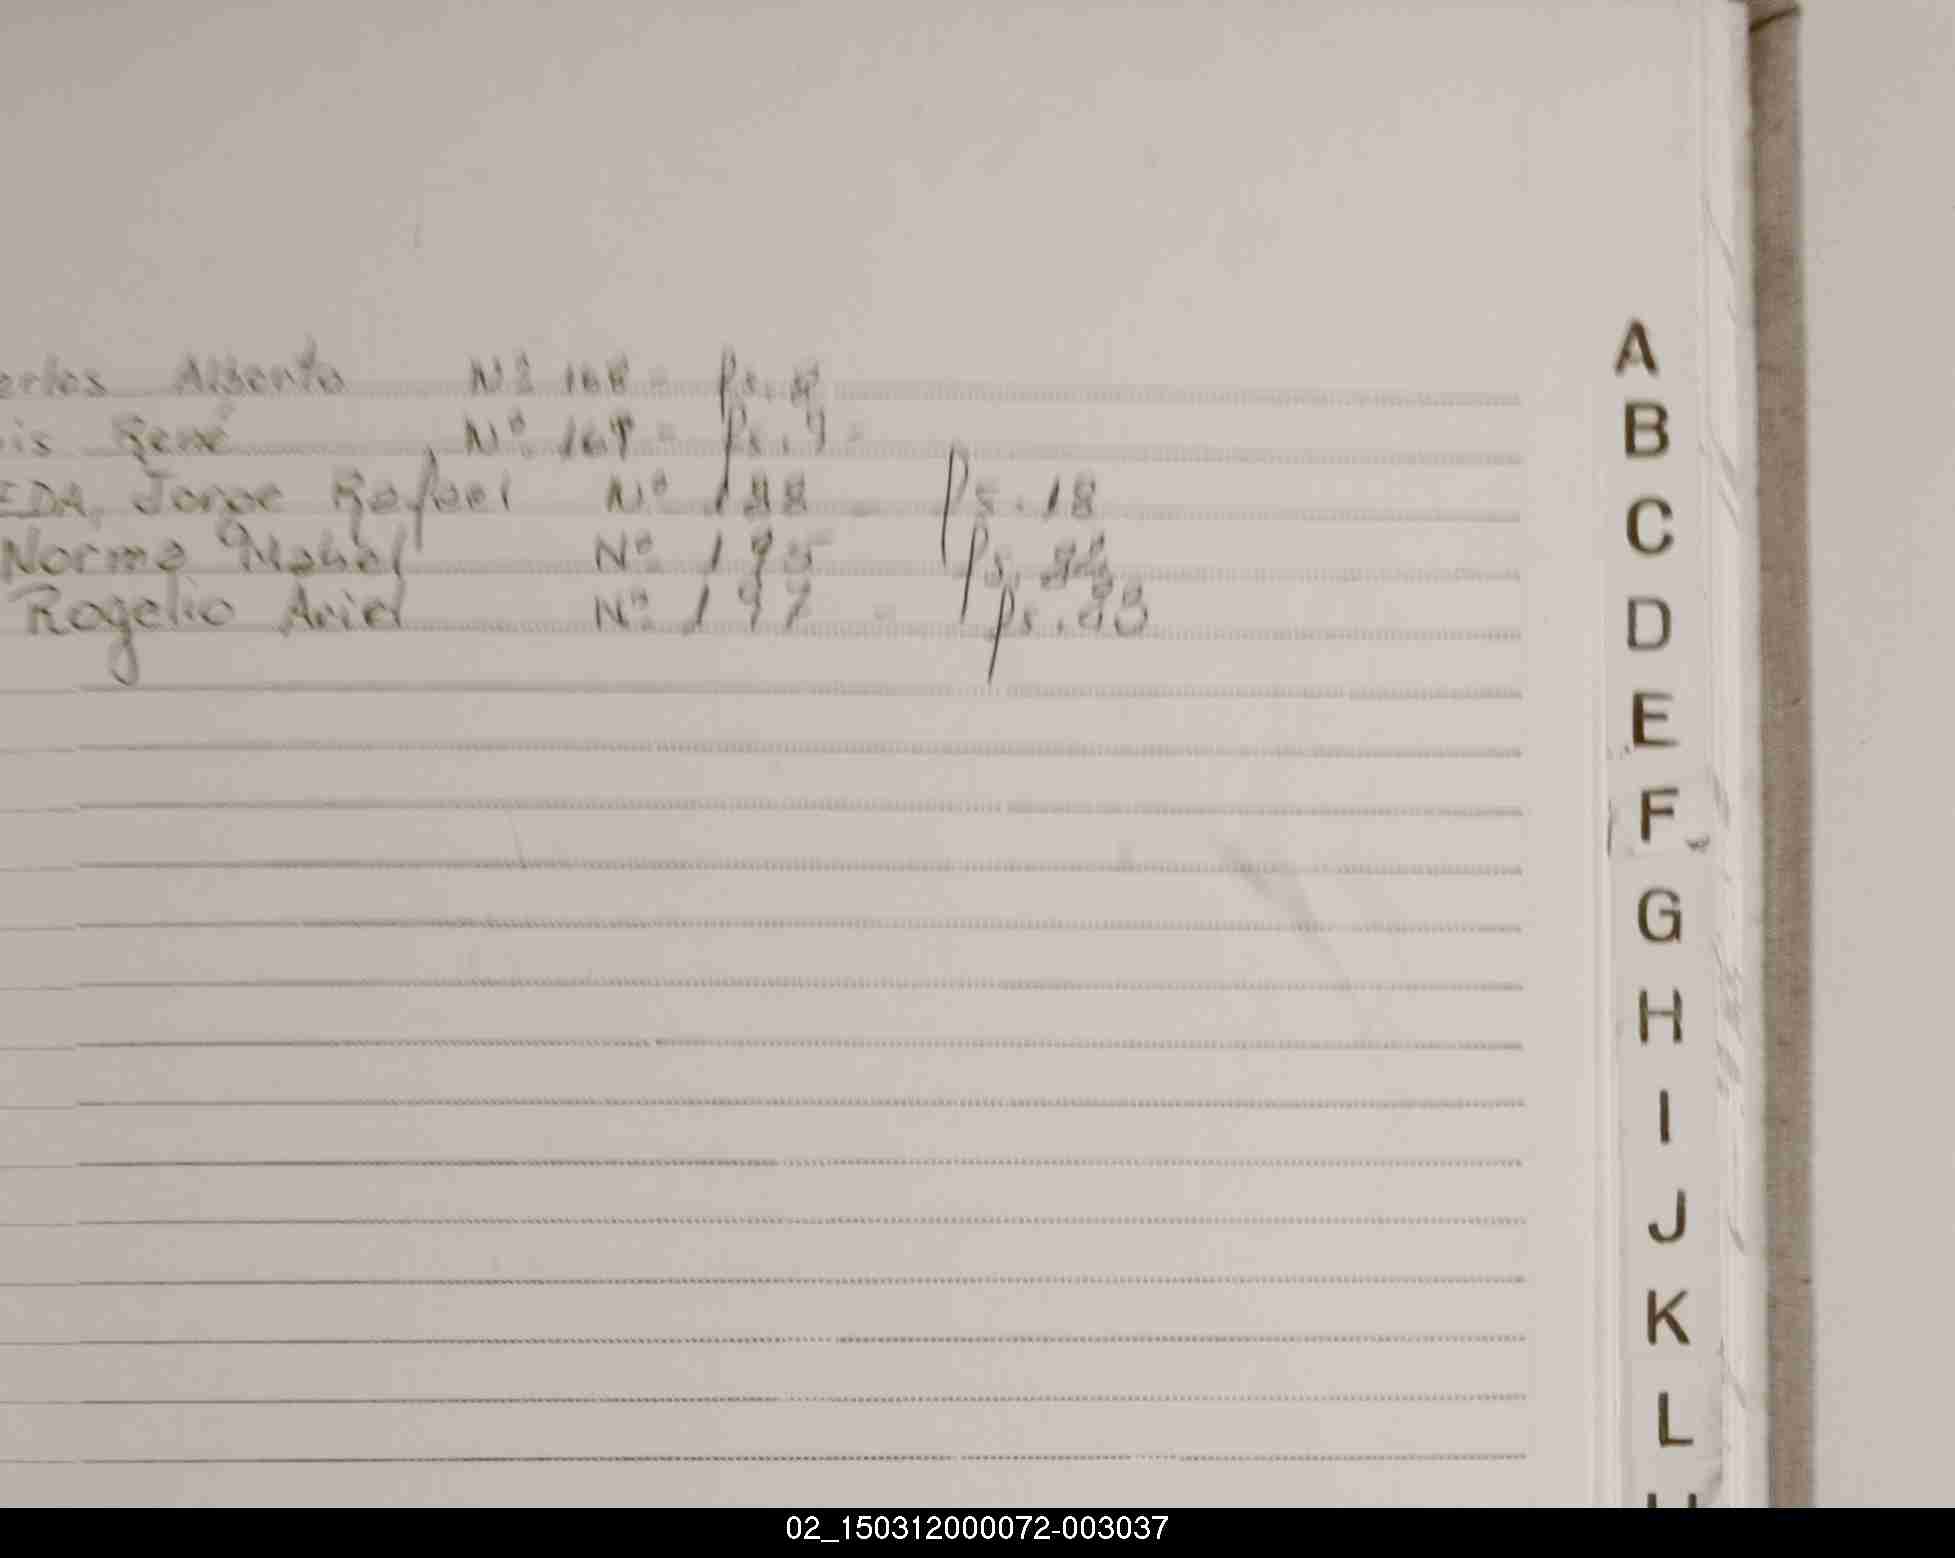 Carlos Alberto Nº 168 = Ps. 8
is René Nº 169 = Ps. 9 =
EDA, Jorge Rafael Nº 188 = Ps. 18
Norma Mabel Nº 195 Ps.
Rogelio Ariel Nº 197 = Ps.
A
B
C
D
E
F
G
H
I
J
K
L
02_150312000072-003037